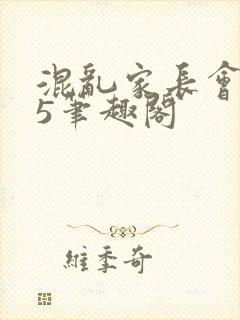 混亂家長會
5筆趣閣
維季奇